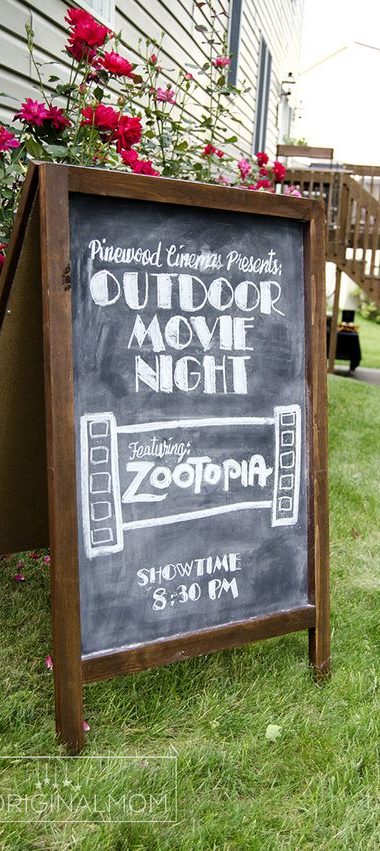 Pinewood Cinemas Presents:
OUTDOOR
MOVIE
NIGHT
Featuring:
ZOOTOPIA
SHOWTIME
8:30 PM
ORIGINALMOM